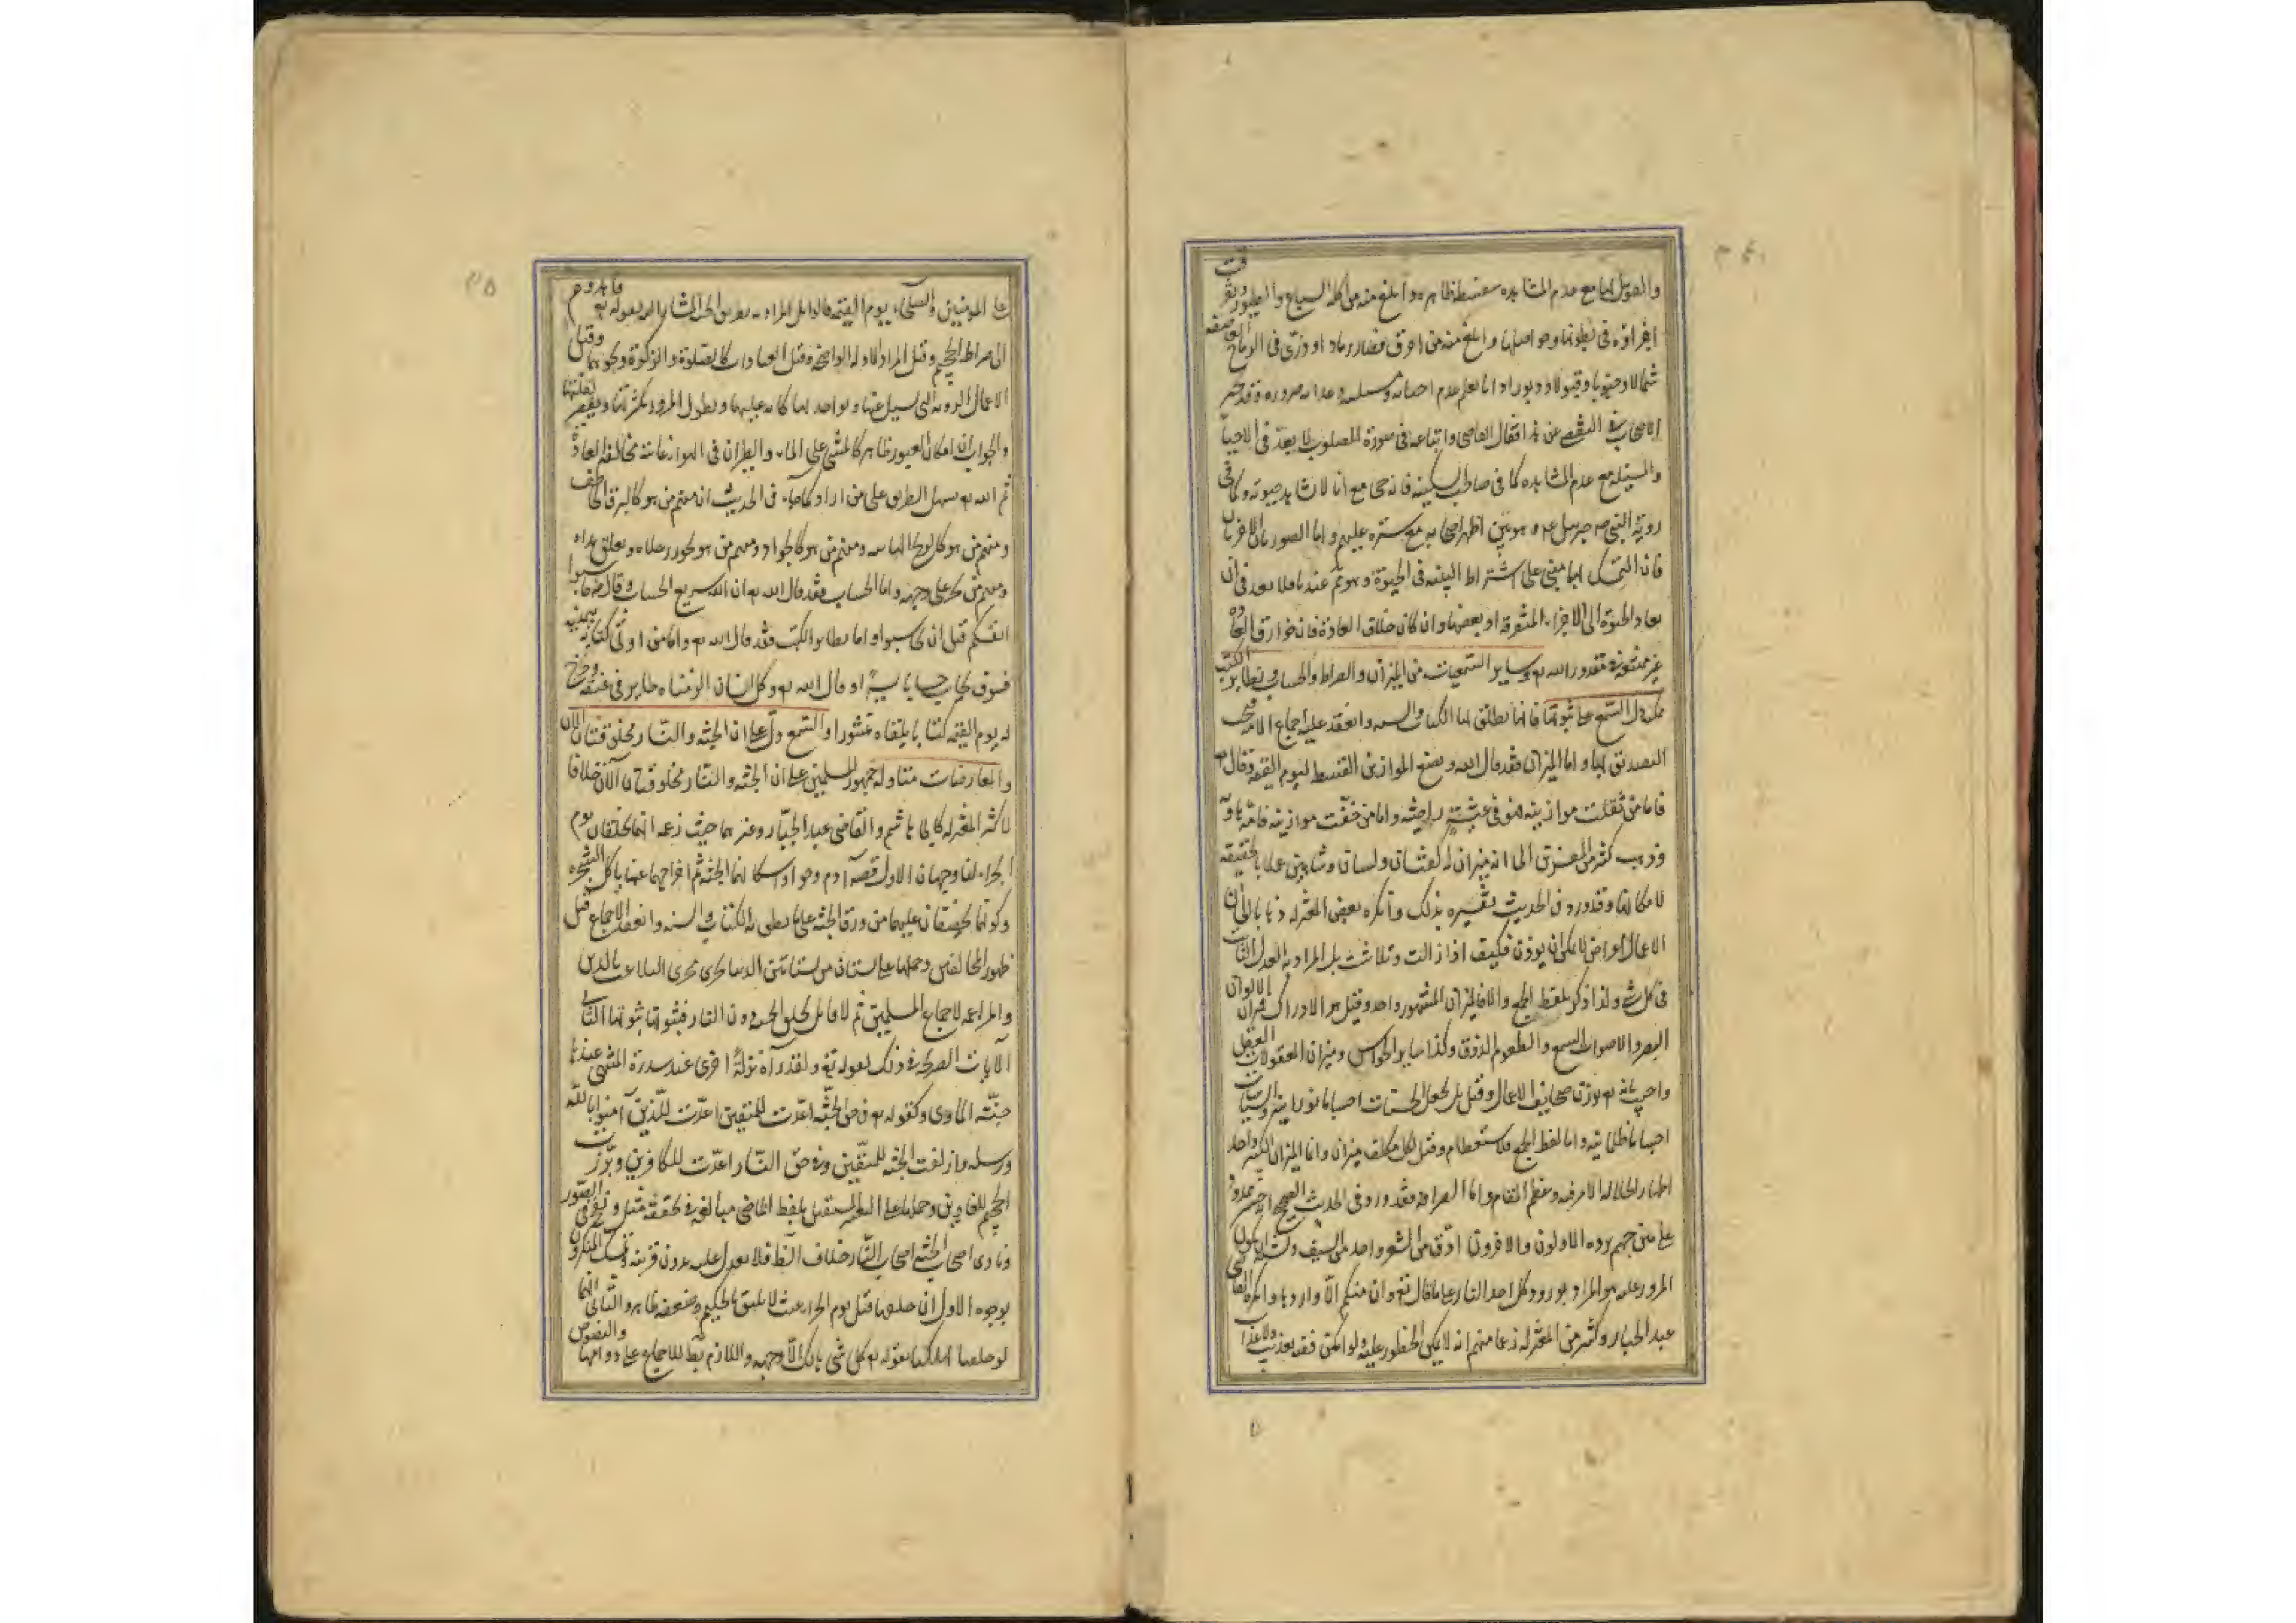 والقول بها مع عدم المشاهده سفسطة ظاهره وابلغ منه من اكله السباع والطيور وتفرقت
اجزاؤه فى بطونها وحواصلها وابلغ منه من احرق فصار رمادا وذرى فى الرياح العاصفه
شمالا وجنوبا وقبولا ودبورا فانا نعلم عدم احيائه ومسئلته وعذابه ضرورة فقد تحير
الاصحاب فى التفصى عن هذا فقال القاضى واتباعه فى صورة المصلوب لا بعد فى الاحياء
والمسئلة مع عدم المشاهده كما فى صاحب السكته فانه حى مع انا لا نشاهد حيوته وكما فى
رؤية النبى جبرئيل وهو بين اظهر اصحابه مع ستره عليهم واما الصورتان الاخريان
فان التمسك بهما مبنى على اشتراط البنيه فى الحيوة وهو ثم عندنا فلا بعد فى ان
يعاد الحيوة الى الاجزاء المتفرقه او بعضها وان كان خلاف العادة فان خوارق العاده
غير ممتنعة فى مقدور الله وساير السمعيات من الميزان والصراط والحساب وتطاير الكتب
ممكن دل السمع على ثبوتها فانها نطق بها الكتاب والسنه وانعقد عليه اجماع الامة فيجب
التصديق بها واما الميزان فقد قال الله ونضع الموازين القسط ليوم القيمه وقال
فاما من ثقلت موازينه فهو فى عيشة راضيه واما من خفت موازينه فامه هاويه
وذهب كثير من المفسرين الى انه ميزان له كفتان ولسان وشاهين عملا بالحقيقه
لامكانها وقد ورد فى الحديث تفسيره بذلك وانكره بعض المعتزله ذهابا الى ان
الاعمال اعراض لا يمكن ان يوزن فكيف اذا زالت وتلاشت بل المراد به العدل الثابت
فى كل شئ ولذا ذكر بلفظ الجمع والا فالميزان المشهور واحد وقيل هو الادراك فميزان الالوان
البصر والاصوات السمع والطعوم الذوق وكذا ساير الحواس وميزان المعقولات العقل
واجيب بانه يوزن صحايف الاعمال وقيل بل يجعل الحسنات اجساما نورانية والسيئات
اجساما ظلمانيه واما لفظ الجمع فللاستعظام وقيل لكل مكلف ميزان وانما الميزان الكبير واحد
اظهارا لجلالة الامر فيه وعظم المقام واما الصراط فقد ورد فى الحديث الصحيح انه جسر ممدود
على متن جهنم يرده الاولون والاخرون ادق من الشعر واحد من السيف ويشبه ان يكون
المرور عليه هو المراد بورود كل احد النار على ما قال تع وان منكم الا واردها وانكره القاضى
عبد الجبار وكثير من المعتزله زعما منهم انه لا يمكن الخطور عليه ولو امكن ففيه تعذيب ولا عذاب
على المؤمنين والصلحاء يوم القيمه قالوا بل المراد به طريق الجنة المشار اليه بقوله فاهدوهم
الى صراط الجحيم وقيل المراد الادله الواضحه وقيل العبادات كالصلوة والزكوة ونحوهما وقيل
الاعمال الرديه التى يسئل عنها ويواخذ بها كانه عليها ويطول المرور بكثرتها ويقصر بقلتها
والجواب ان امكان العبور ظاهر كالمشى على الماء والطيران فى الهواء غايته مخالفة العادة
ثم الله يسهل الطريق على من اراد كما جاء فى الحديث ان منهم من هو كالبرق الخاطف
ومنهم من هو كالريح الهابه ومنهم من هو كالجواد ومنهم من هو تخور رجلاه وتعلق يداه
ومنهم من يخر على وجهه واما الحساب فقد قال الله ان الله سريع الحساب وقال حاسبوا
انفسكم قبل ان تحاسبوا واما تطاير الكتب فقد قال الله فاما من اوتى كتابه بيمينه
فسوف يحاسب حسابا يسيرا وقال الله وكل انسان الزمناه طايره فى عنقه ونخرج
له يوم القيمه كتابا يلقاه منشورا والسمع دل على ان الجنة والنار مخلوقتان الان
والمعارضات متاولة جمهور المسلمين على ان الجنة والنار مخلوقتان الآن خلافا
لاكثر المعتزله كابى هاشم والقاضى عبد الجبار وغيرهما حيث زعموا انهما يخلقان يوم
الجزاء لنا وجهان الاول قصة آدم وحوا واسكانهما الجنة ثم اخراجهما عنها باكل الشجره
وكونهما يخصفان عليهما من ورق الجنة على ما نطق به الكتاب والسنه وانعقد الاجماع قبل
ظهور المخالفين وحملها على بستان من بساتين الدنيا يجرى مجرى التلاعب بالدين
والمراغمه لاجماع المسلمين ثم لا قائل بخلق الجنه دون النار فثبوتها ثبوتها الثانى
الآيات الصريحة فى ذلك كقوله تع ولقد رآه نزلة اخرى عند سدرة المنتهى عندها
جنة الماوى وكقوله فى حق الجنة اعدت للمتقين اعدت للذين آمنوا بالله
ورسله وازلفت الجنة للمتقين وفى حق النار اعدت للكافرين وبرزت
الجحيم للغاوين وحملها على التعبير عن المستقبل بلفظ الماضى مبالغه فى تحققه مثل ونفخ فى الصور
ونادى اصحاب الجنة اصحاب النار خلاف الظ فلا يعدل عليه بدون قرينه وتمسك المنكرون
بوجوه الاول ان خلقها قبل يوم الجزاء عبث لا يليق بالحكيم وضعفه ظاهر والثانى انهما
لو خلقتا لهلكتا بقوله كل شئ هالك الا وجهه واللازم بط للاجماع على دوامها والنصوص